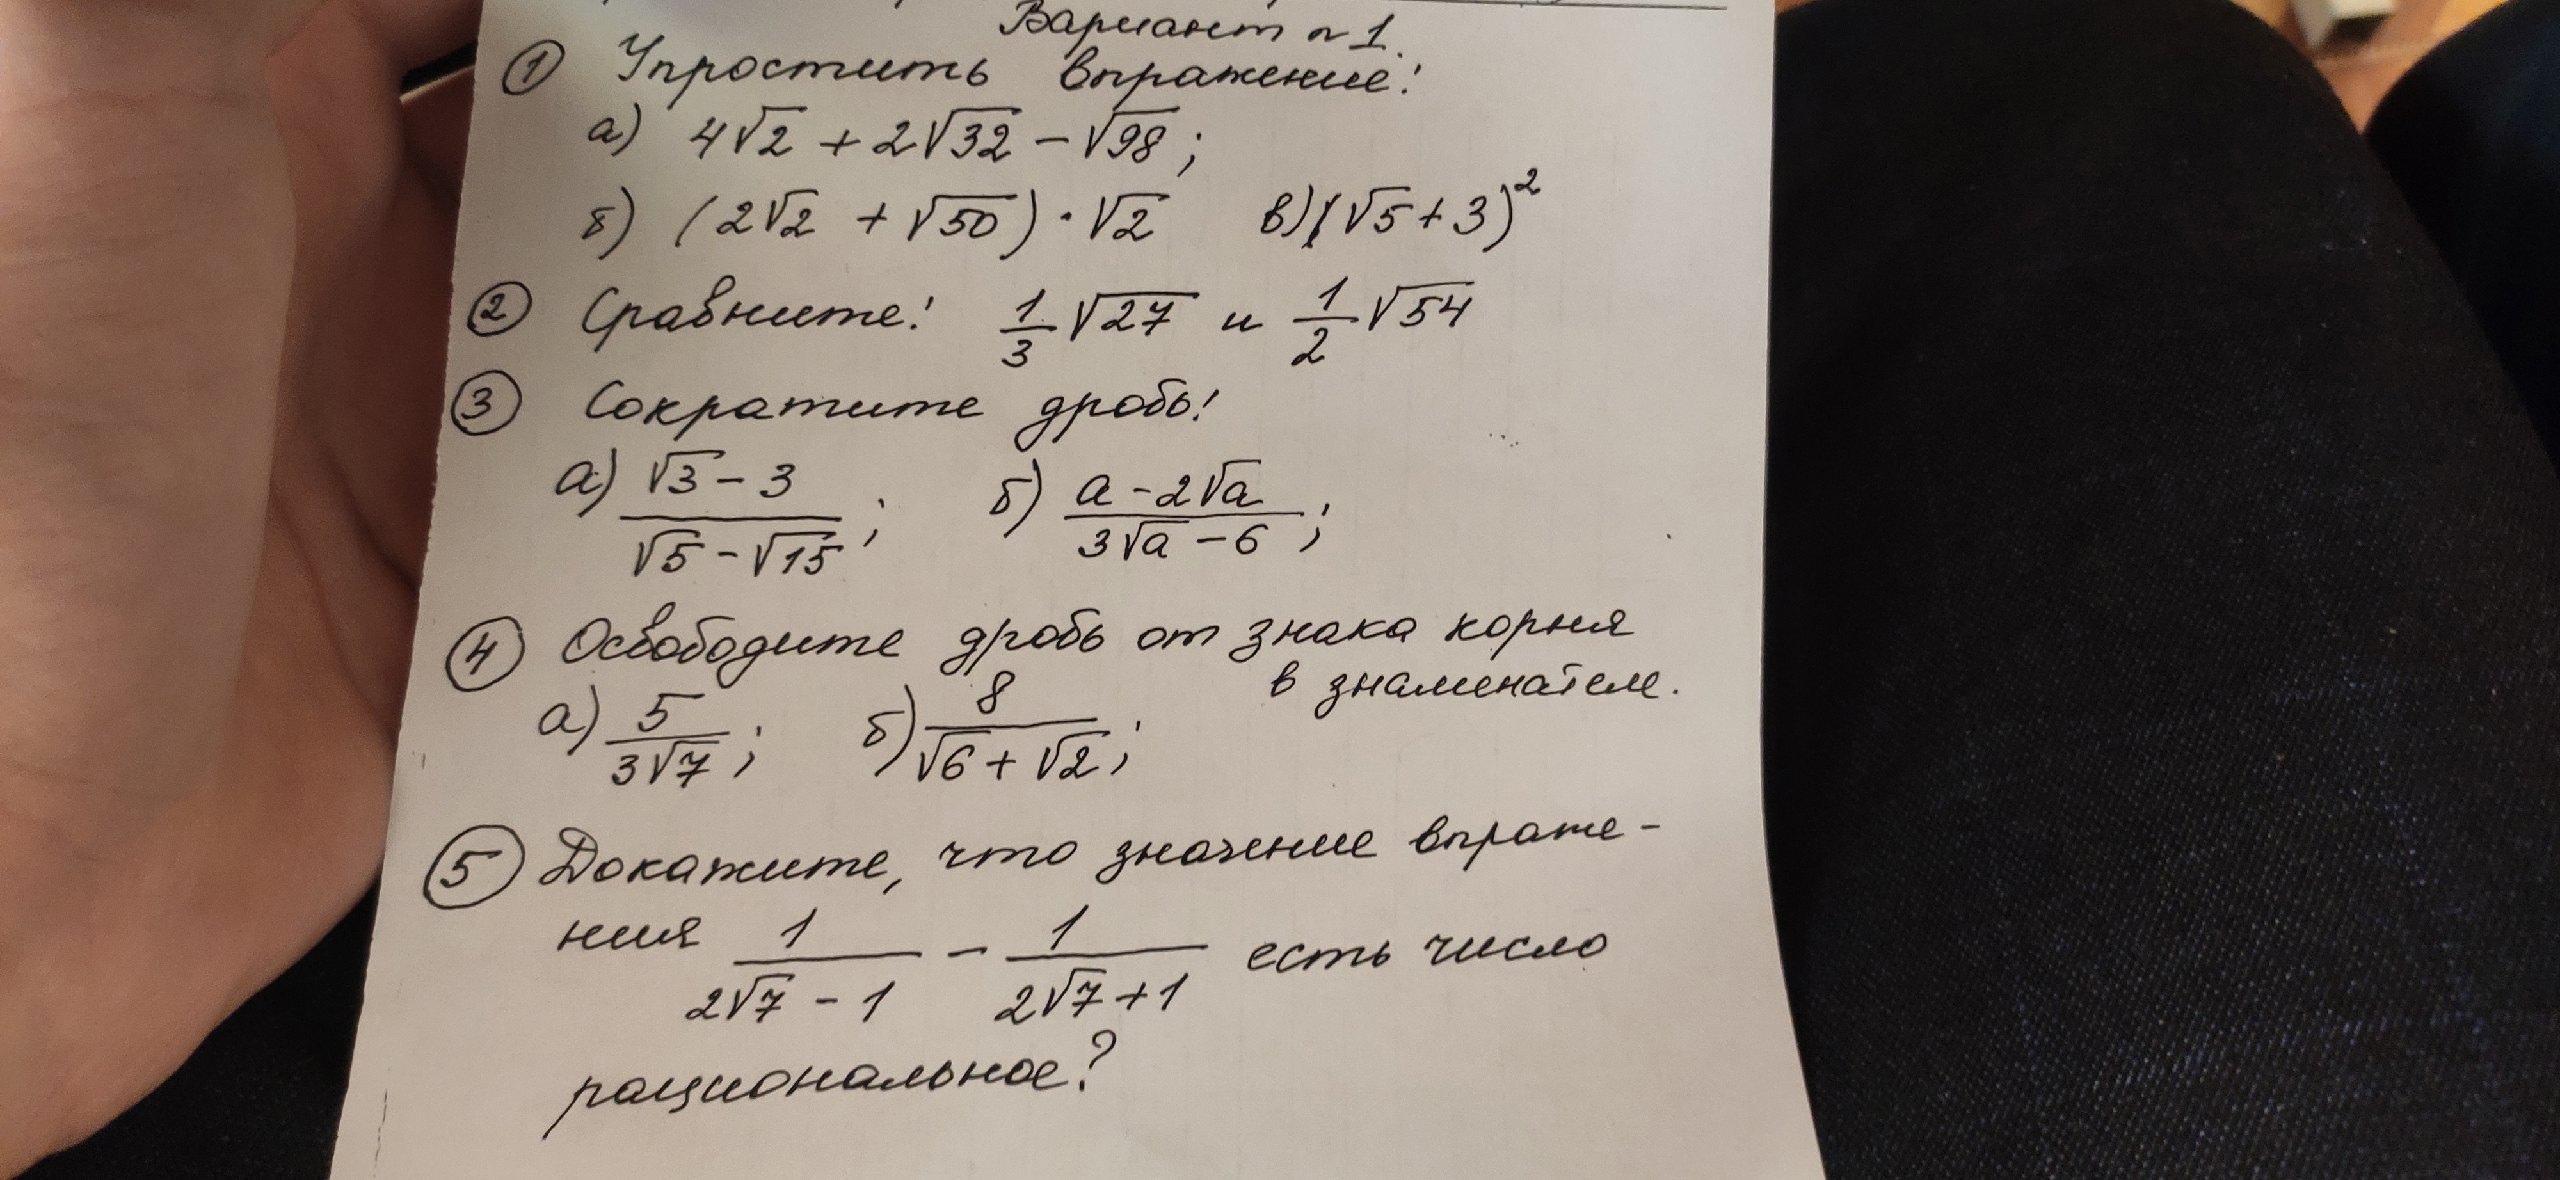 Вариант №1.
① Упростить выражение:
а) 4√2 + 2√32 − √98 ;
б) (2√2 + √50) · √2 в) (√5 + 3)²
② Сравните: 1/3 √27 и 1/2 √54
③ Сократите дробь:
а) (√3 − 3)/(√5 − √15) ; б) (a − 2√a)/(3√a − 6) ;
④ Освободите дробь от знака корня
в знаменателе.
а) 5/(3√7) ; б) 8/(√6 + √2) ;
⑤ Докажите, что значение выраже-
ния 1/(2√7 − 1) − 1/(2√7 + 1) есть число
рациональное?